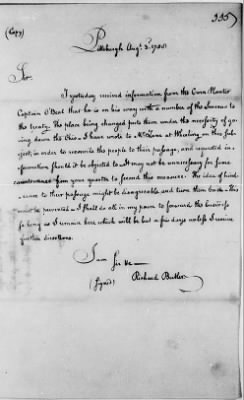 335
(Copy)
Pittsburgh Augt. 2. 1788
Sir
I yesterday received information from the Corn Planter
Captain O'Beal that he is on his way with a number of the Senecas to
the treaty. The place being changed puts them under the necessity of go
ing down the Ohio — I have wrote to at Wheeling on this sub
ject, in order to reconcile the people to their passage, and repeated in
formation should it be objected to it may not be unnecessary for some
from your quarter to second this measure. The idea of hind
rance to their passage might be disagreeable and turn them back — This
must be prevented — I shall do all in my power to forward the business
so long as I remain here which will be but a few days unless I receive
further directions.
I am Sir &c —
(Signed) Richard Butler